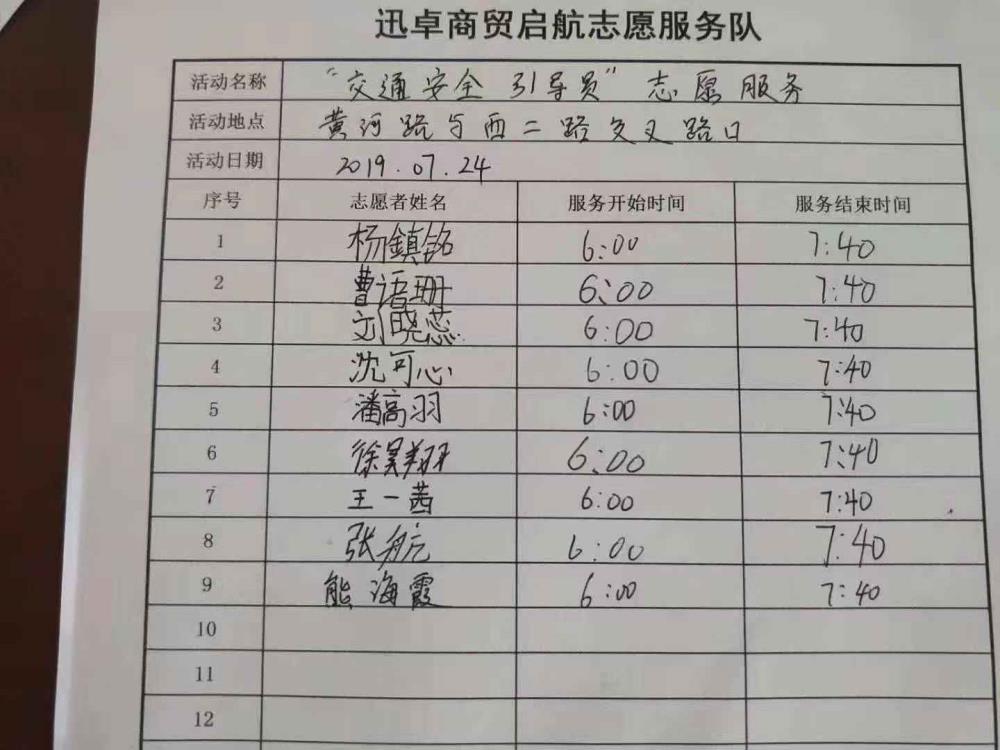 迅卓商贸启航志愿服务队
活动名称 “交通安全引导员”志愿服务
活动地点 黄河路与西二路交叉路口
活动日期 2019.07.24
序号 志愿者姓名 服务开始时间 服务结束时间
1 杨鎮铭 6:00 7:40
2 曹语珊 6:00 7:40
3 刘晓蕊 6:00 7:40
4 沈可心 6:00 7:40
5 潘高羽 6:00 7:40
6 徐昊翔 6:00 7:40
7 王一茜 6:00 7:40
8 张航 6:00 7:40
9 熊海霞 6:00 7:40
10
11
12